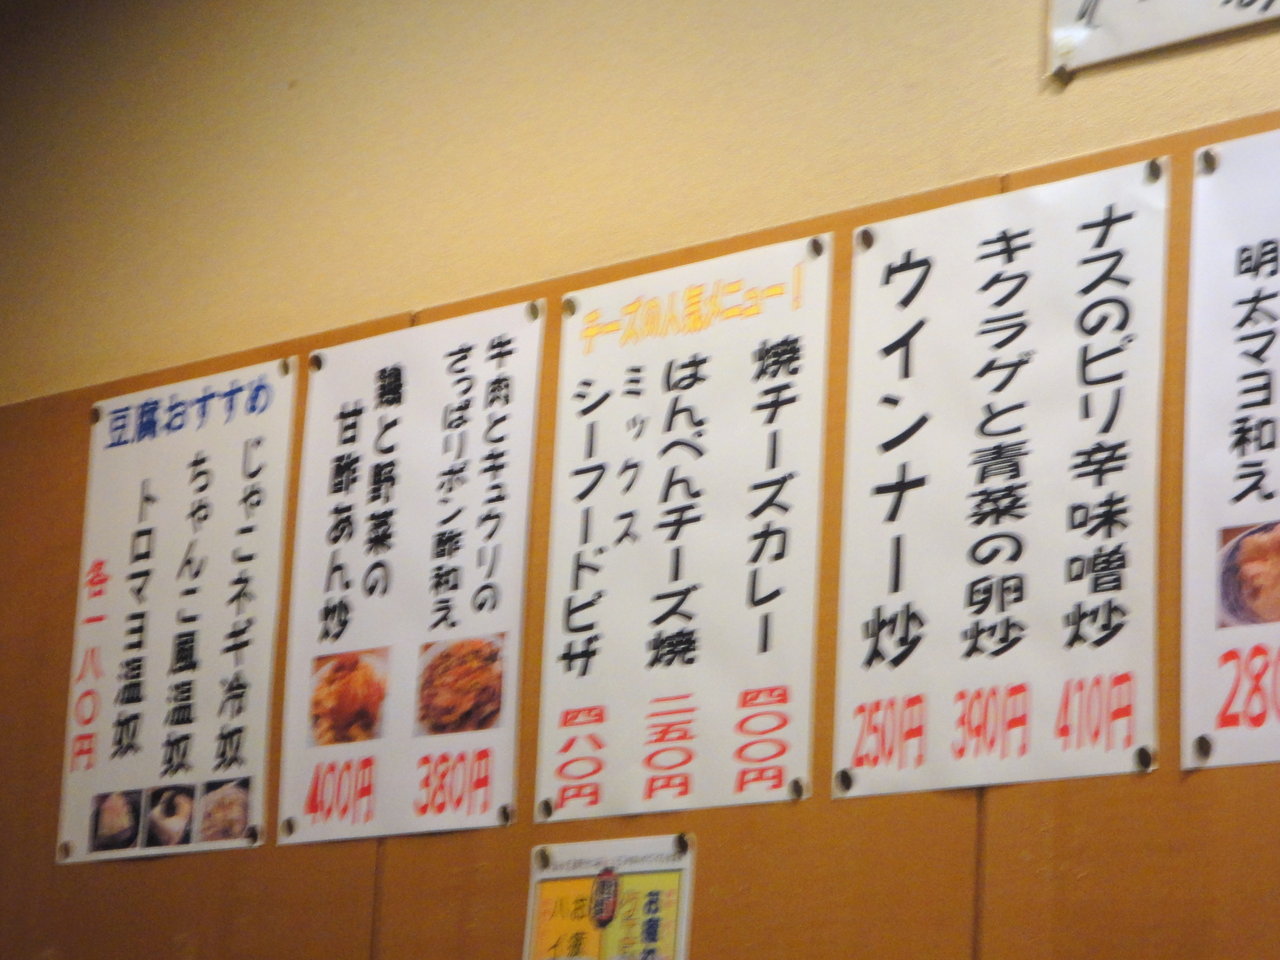 明太マヨ和え
280
ナスのピリ辛味噌炒
410円
キクラゲと青菜の卵炒
390円
ウインナー炒
250円
チーズの人気メニュー!
焼チーズカレー
四〇〇円
はんぺんチーズ焼
二五〇円
ミックス
シーフードピザ
四八〇円
牛肉とキュウリの
さっぱりポン酢和え
380円
鶏と野菜の
甘酢あん炒
400円
豆腐おすすめ
じゃこネギ冷奴
ちゃんこ風温奴
トロマヨ温奴
各一八〇円